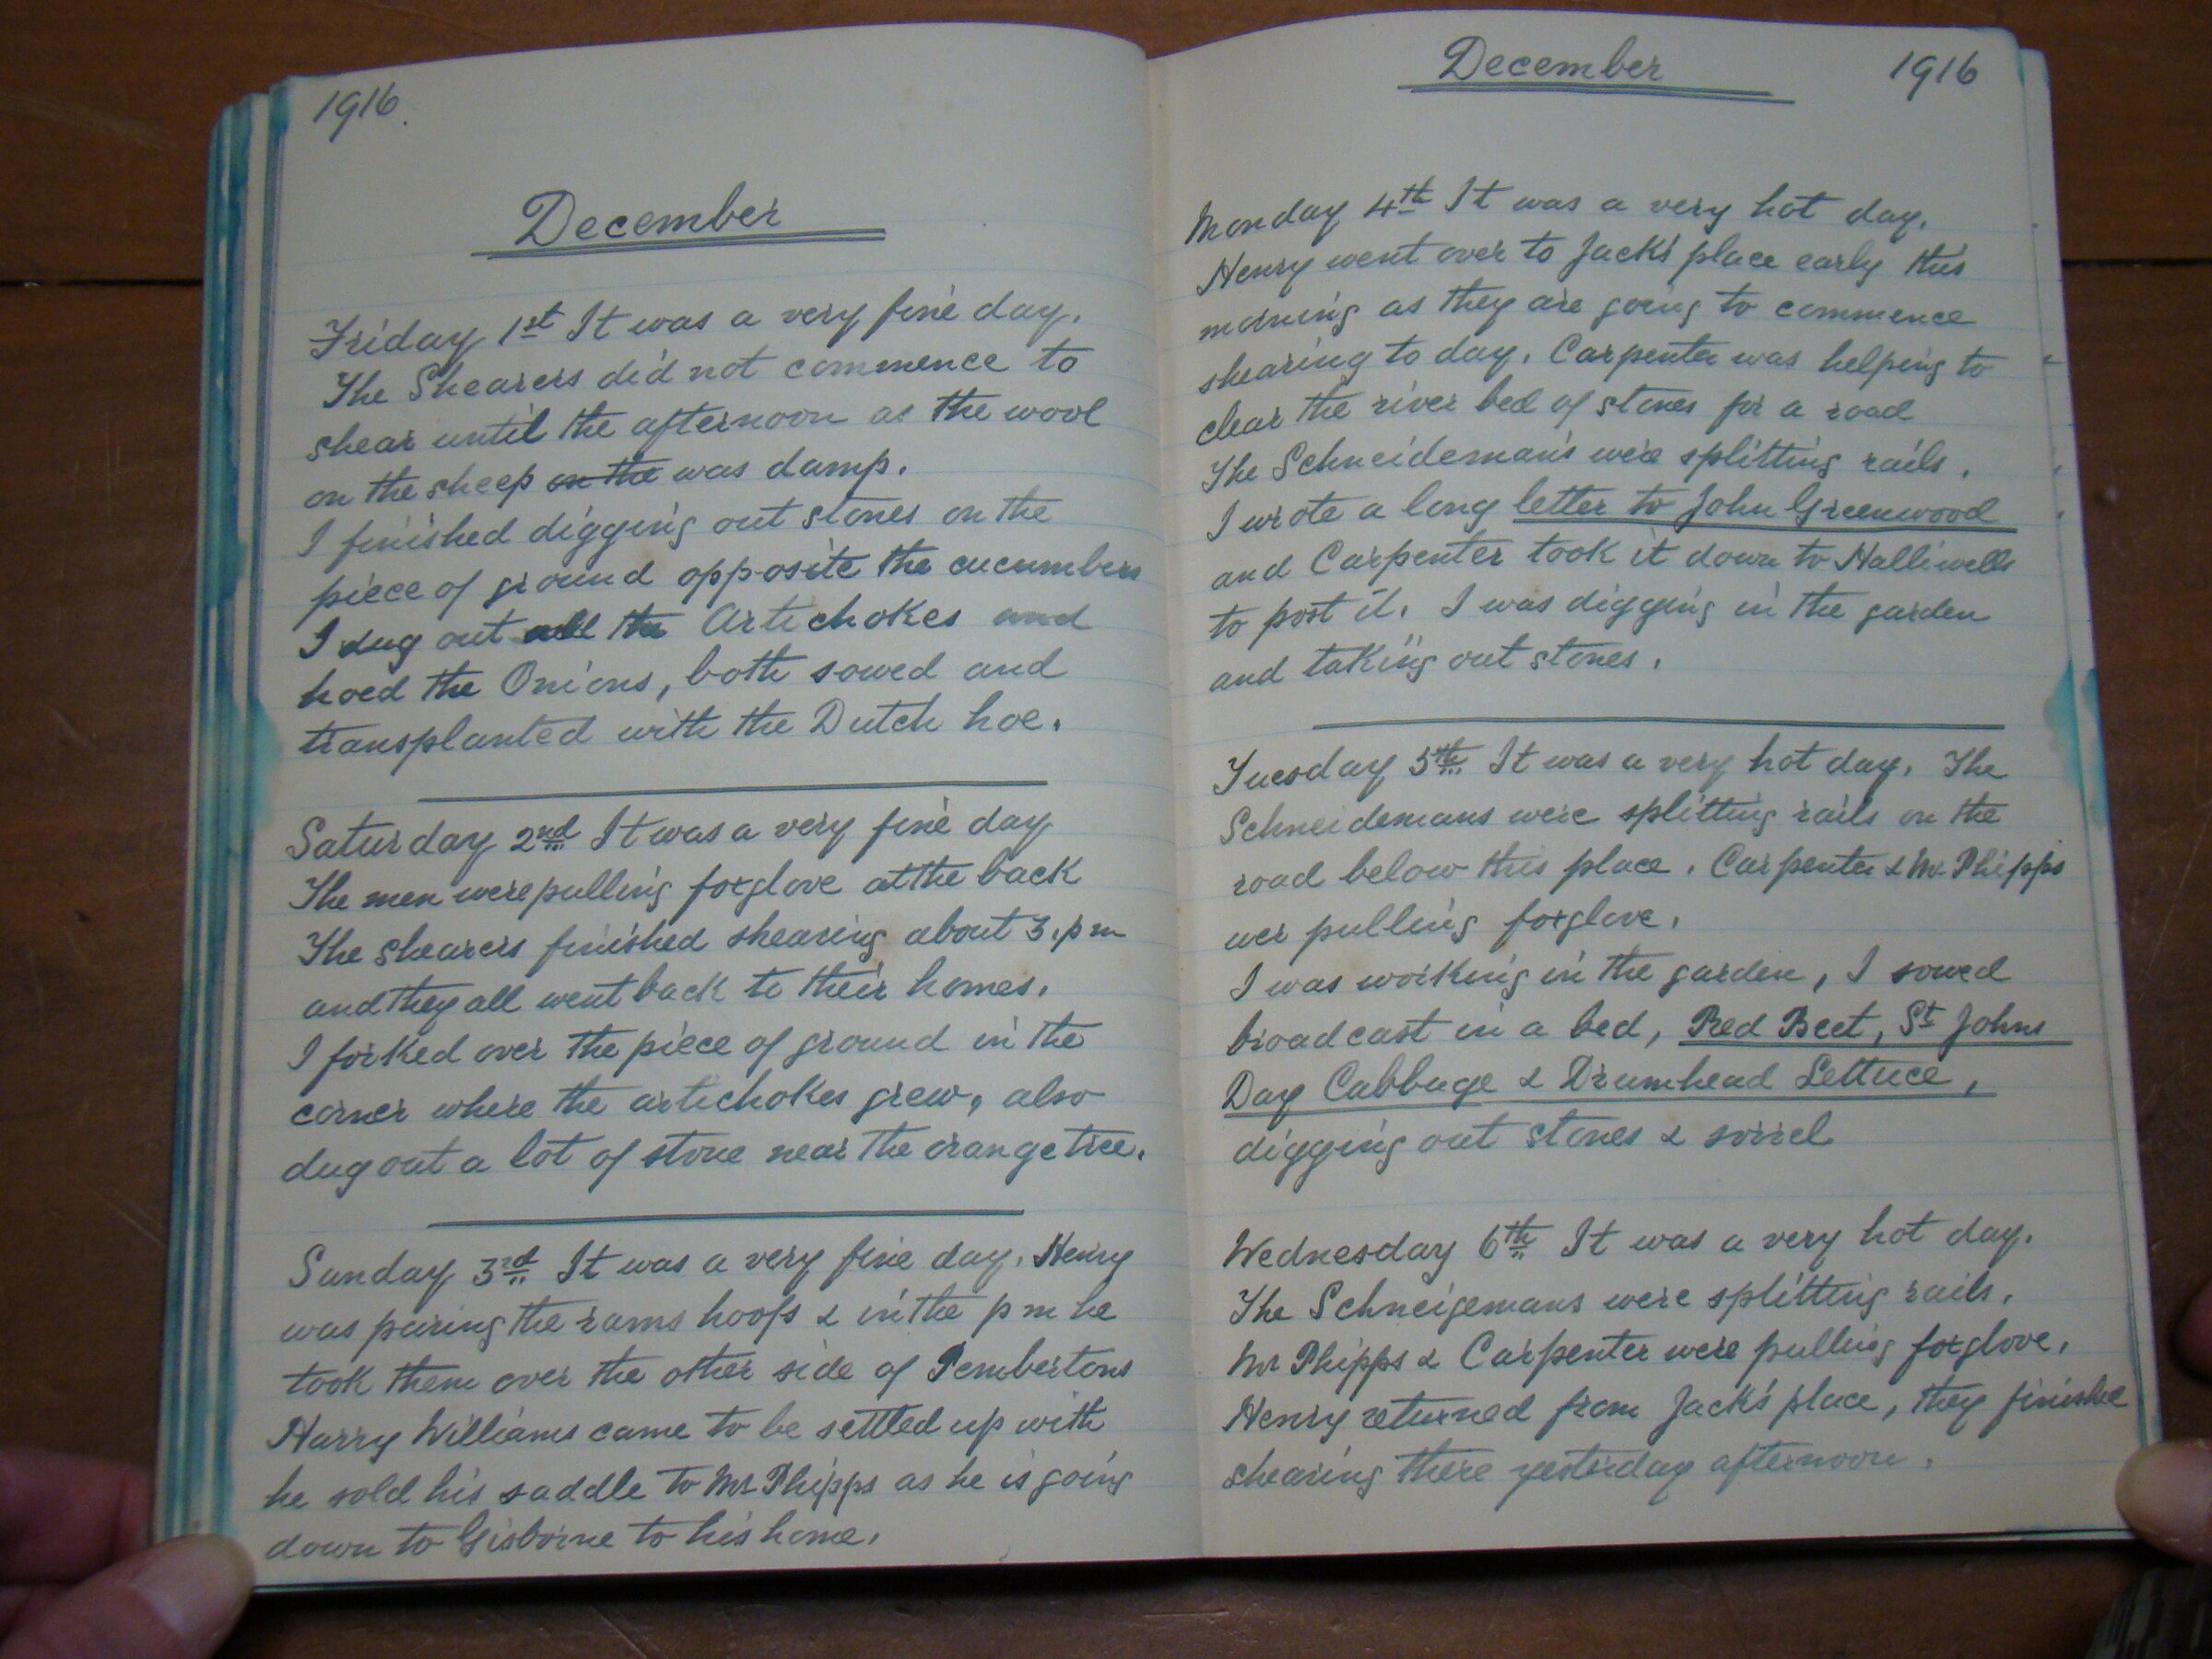 1916.
December
Friday 1st It was a very fine day.
The Shearers did not commence to
shear until the afternoon as the wool
on the sheep on the was damp.
I finished digging out stones on the
piece of ground opposite the cucumbers
I dug out all the Artichokes and
hoed the Onions, both sowed and
transplanted with the Dutch hoe.
Saturday 2nd It was a very fine day
The men were pulling foxglove at the back
The shearers finished shearing about 3.pm
and they all went back to their homes.
I forked over the piece of ground in the
corner where the artichokes grew, also
dug out a lot of stone near the orange tree.
Sunday 3rd It was a very fine day. Henry
was paring the rams hoofs & in the pm he
took them over the other side of Pembertons
Harry Williams came to be settled up with
he sold his saddle to Mr Phipps as he is going
down to Gisborne to his home.
December 1916
Monday 4th It was a very hot day.
Henry went over to Jack's place early this
morning as they are going to commence
shearing to day. Carpenter was helping to
clear the river bed of stones for a road
The Schneideman's were splitting rails.
I wrote a long letter to John Greenwood
and Carpenter took it down to Halliwells
to post it. I was digging in the garden
and taking out stones.
Tuesday 5th It was a very hot day. The
Schneidemans were splitting rails on the
road below this place. Carpenter & Mr Phipps
wer pulling foxglove.
I was working in the garden, I sowed
broadcast in a bed, Red Beet, St Johns
Day Cabbage & Drumhead Lettuce,
digging out stones & sorrel
Wednesday 6th It was a very hot day.
The Schneigemans were splitting rails.
Mr Phipps & Carpenter were pulling foxglove.
Henry returned from Jack's place, they finishe
shearing there yesterday afternoon.